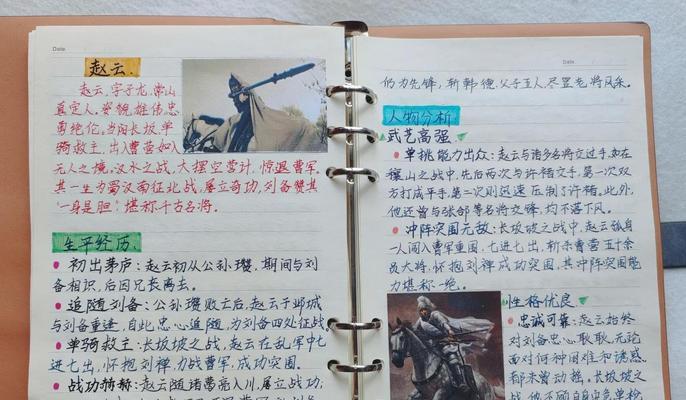 Date.
赵云.
赵云,字子龙,常山
真定人。姿貌雄伟,忠
勇绝伦,当阳长坂,单
骑救主,出入曹营如入
无人之境,汉水之战,大摆空营计,惊退曹军。
其一生为蜀汉南征北战,屡立奇功,刘备赞其
“一身是胆”,堪称千古名将。
生平经历.
初出茅庐:赵云初从公孙瓒,期间与刘
备相识,后因兄长离去。
追随刘备:公孙瓒败亡后,赵云于邺城
与刘备重逢,自此忠心追随,为刘备四处征战
单骑救主:长坂坡之战,赵云在乱军中七
进七出,怀抱刘禅,力战曹军,成功突围。
赵云随诸葛亮入川,屡立战功;
Date.
仍为先锋,斩韩德父子五人,尽显老将风采。
人物分析.
武艺高强.
单挑能力出众:赵云与诸多名将交过手,如在
穰山之战中,先后两次与许褚交手,第一次双
方打成平手,第二次则迅速压制了许褚。此外,
他还曾与张郃等名将交锋,均不落下风。
冲阵突围无敌:长坂坡之战中,赵云孤身
一人闯入曹军重围,七进七出,斩杀曹营五十余
员大将,怀抱刘禅成功突围,其冲阵突围能
力堪称一绝。
性格优良
忠诚可靠:赵云始终
对刘备忠心耿耿,无论
面对何种困难和诱惑
都未曾动摇。长坂坡之
战,他不顾自身安危单枪